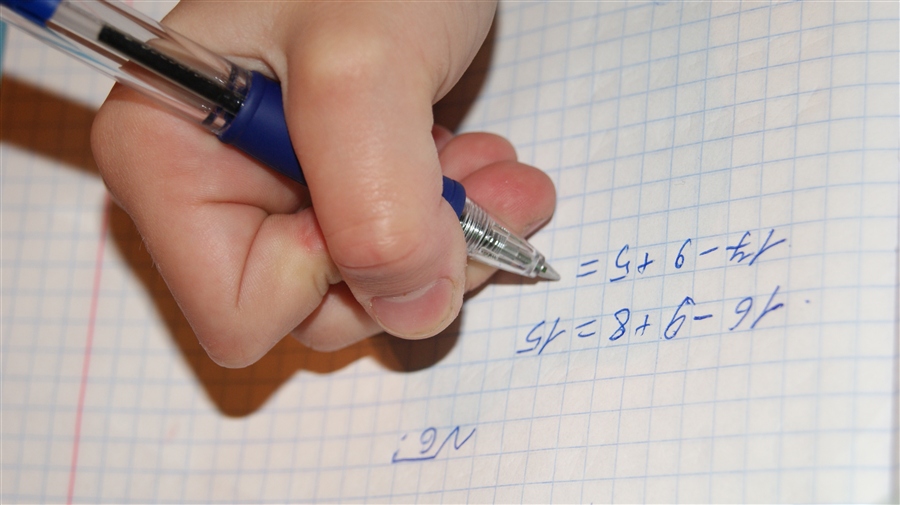 N6
16 - 9 + 8 = 15
17 - 9 + 5 =